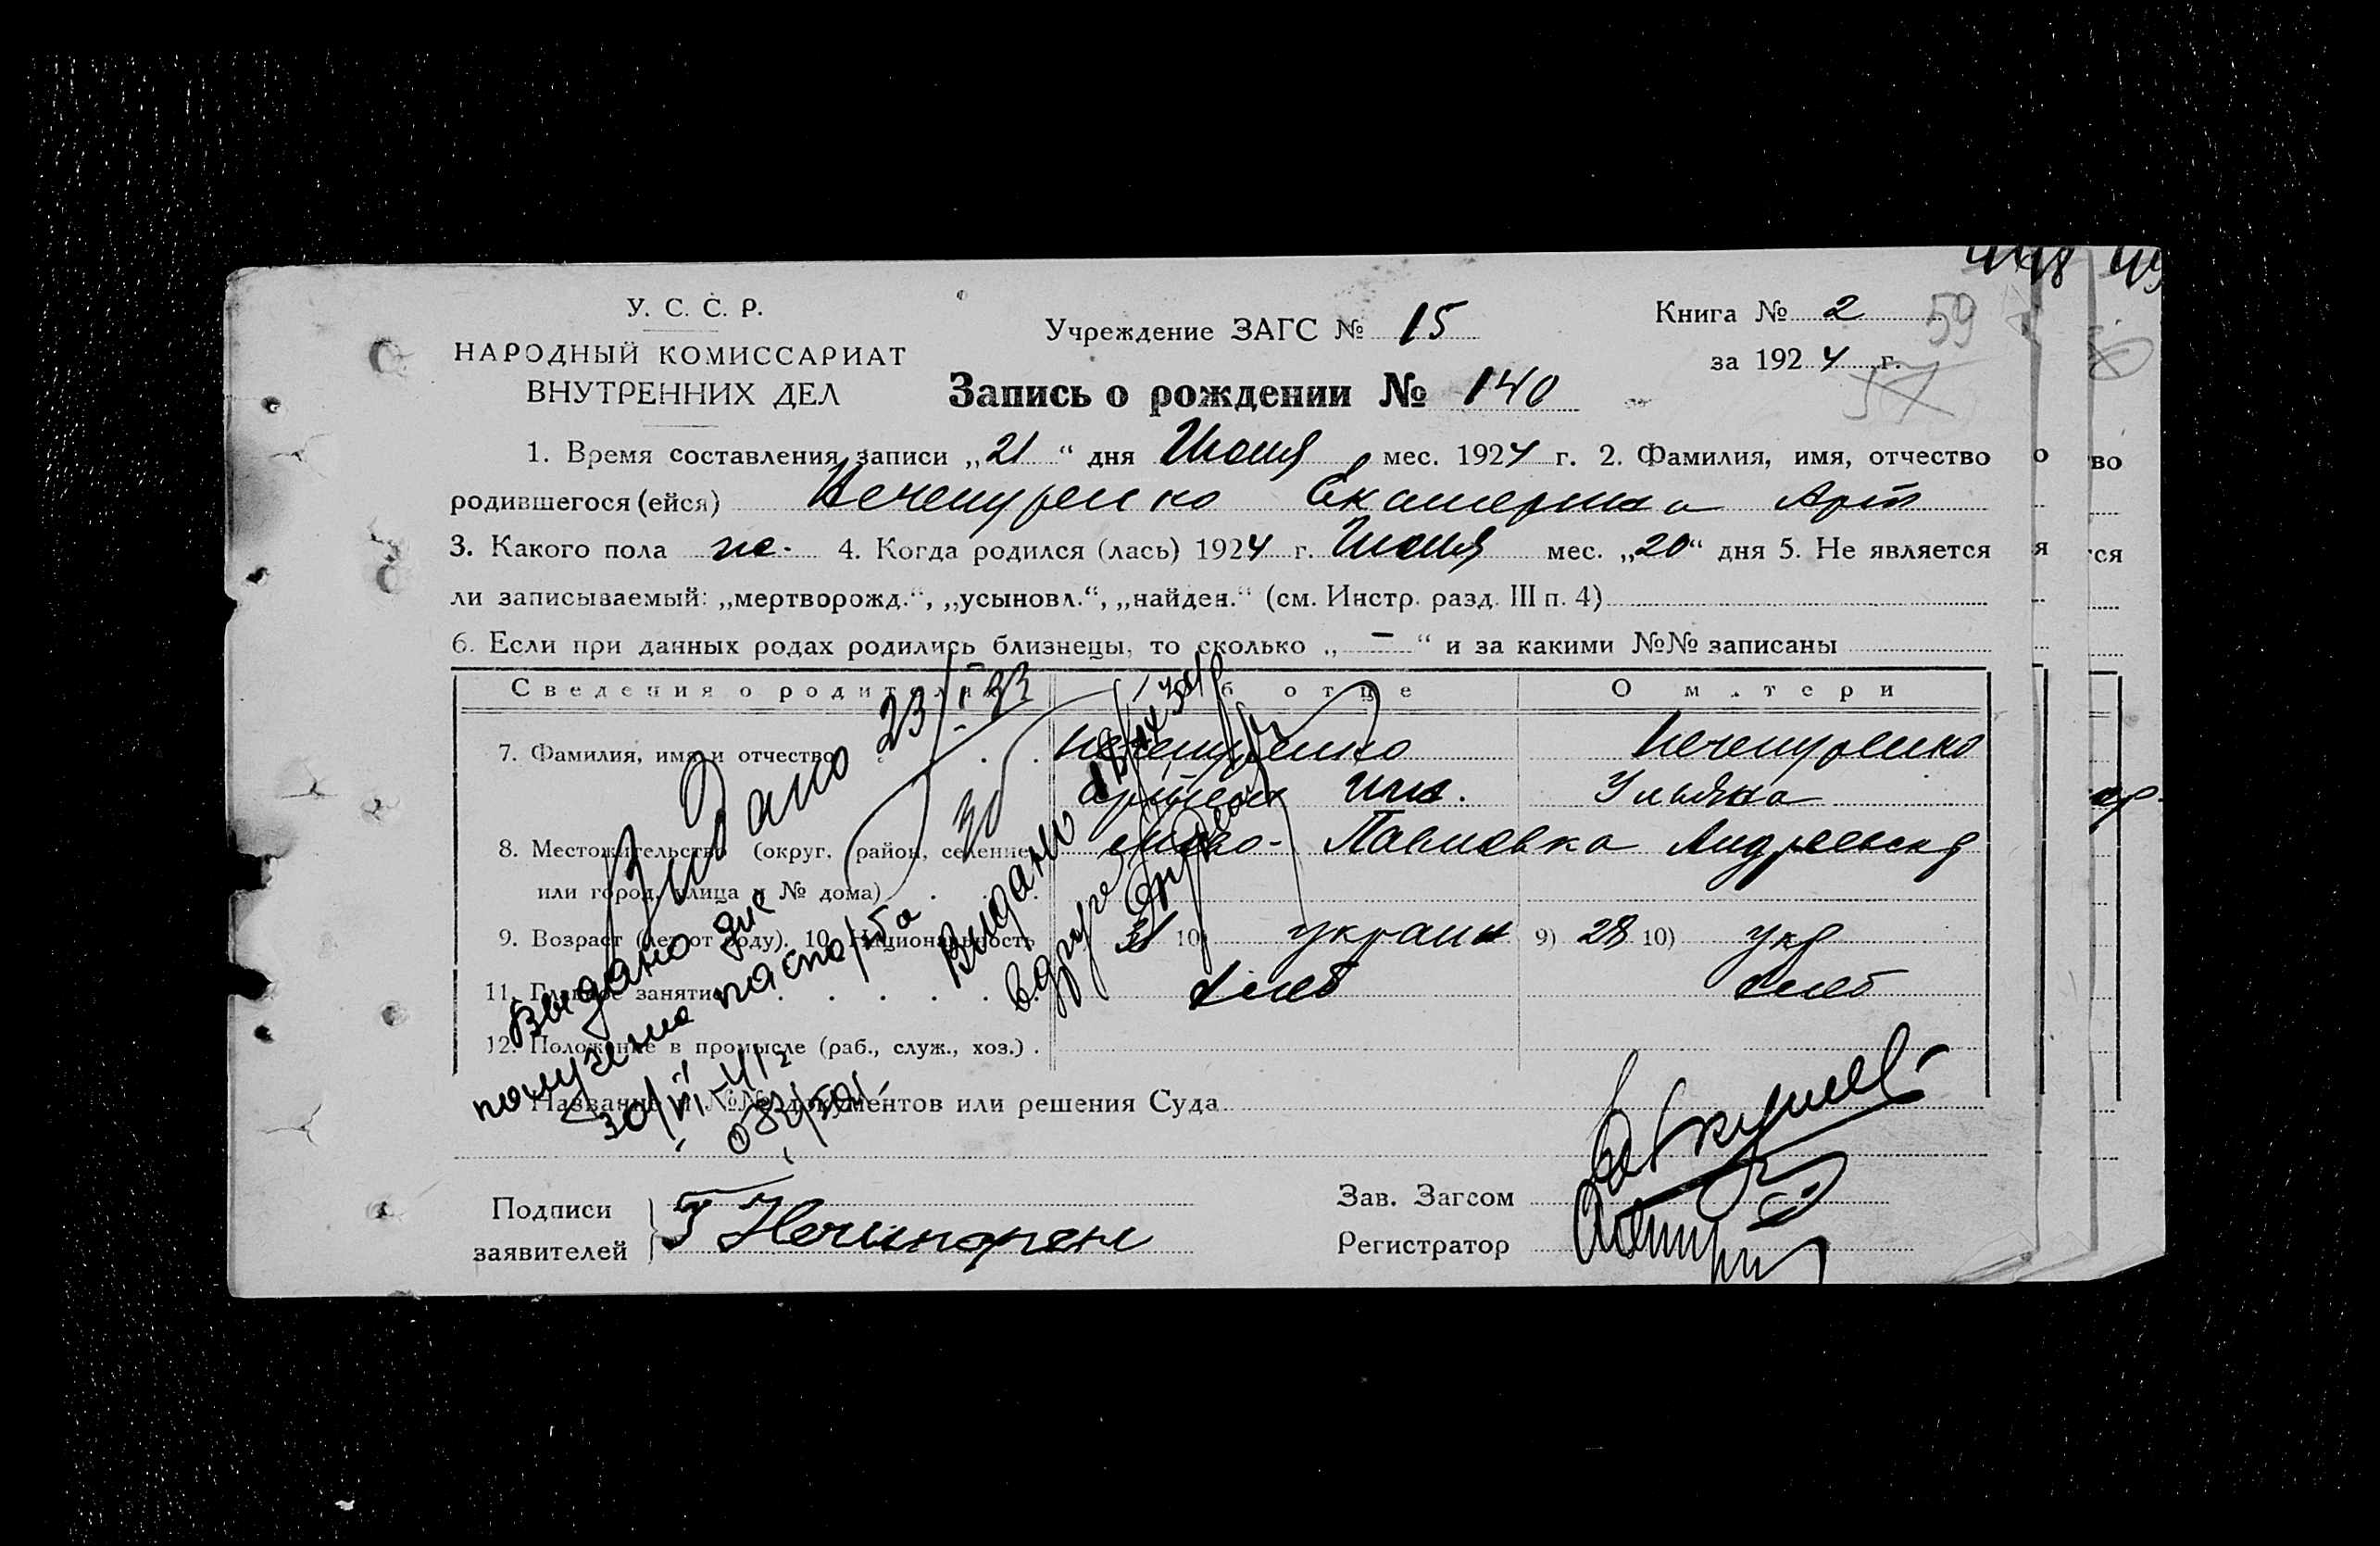 У. С. С. Р.
НАРОДНЫЙ КОМИССАРИАТ
ВНУТРЕННИХ ДЕЛ
Учреждение ЗАГС № 15
Книга № 2
59
за 1924 г.
57
Запись о рождении № 140
1. Время составления записи „21“ дня Июня мес. 1924 г. 2. Фамилия, имя, отчество
родившегося (ейся) Нечепуренко Екатерина Арт
3. Какого пола же. 4. Когда родился (лась) 1924 г. Июня мес. „20“ дня 5. Не является
ли записываемый: „мертворожд.“, „усыновл.“, „найден.“ (см. Инстр. разд. III п. 4)
6. Если при данных родах родились близнецы, то сколько „—“ и за какими №№ записаны
Сведения о родителях Об отце О матери
7. Фамилия, имя и отчество Нечепуренко Нечепуренко
Артем Ульяна
8. Местожительство (округ, район, селение Павловка
или город, улица и № дома)
9. Возраст (лет от роду). 10. Национальность 31 10) украин 9) 28 10) укр
11. Главное занятие хлеб хлеб
12. Положение в промысле (раб., служ., хоз.)
Название и №№ документов или решения Суда
Видано 23/I-33
Выдано для
получения паспорта
30/VI-41 г
Видано
Подписи
заявителей
Зав. Загсом
Регистратор